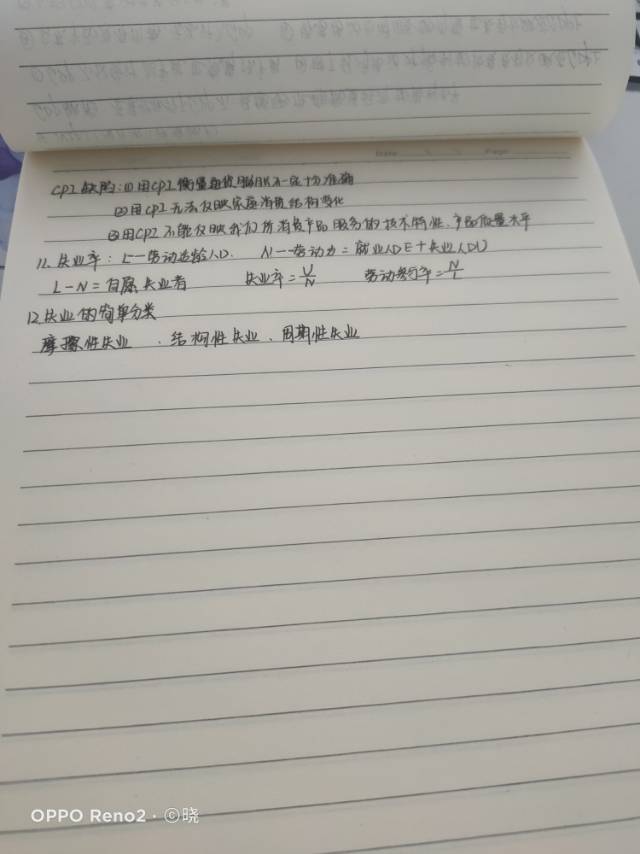 CPI缺陷:①用CPI衡量通货膨胀不一定十分准确
②用CPI无法反映家庭消费结构变化
③用CPI不能反映我们所消费产品服务的技术特性、产品质量水平
11.失业率:L—劳动适龄人口. N—劳动力=就业人口E+失业人口U
L-N=自愿失业者 失业率=U/N 劳动参与率=N/L
12.失业的简单分类
摩擦性失业、结构性失业、周期性失业
OPPO Reno2·©晓